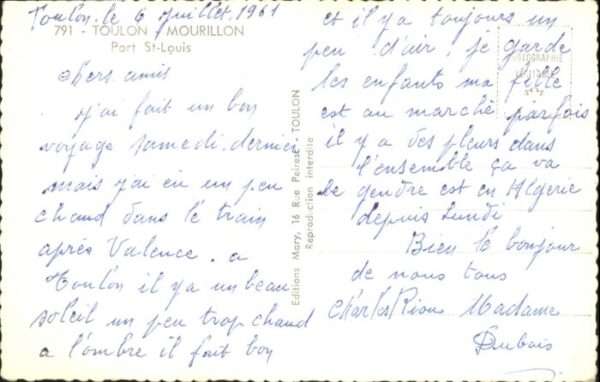 Toulon, le 6 Juillet, 1961
791 - TOULON - MOURILLON
Port St-Louis
Chers amis
j'ai fait un bon
voyage samedi dernier
mais j'ai eu un peu
chaud dans le train
après Valence. a
Toulon il y a un beau
soleil un peu trop chaud
a l'ombre il fait bon
Editions Mary, 16 Rue Peiresc, TOULON
Reproduction interdite
et il y a toujours un
peu d'air, je garde
les enfants ma fille
est au marché parfois
il y a des pleurs dans
l'ensemble ça va
Le gendre est en Algerie
depuis Lundi
Bien le bonjour
de nous tous
Charles Madame
Dubois